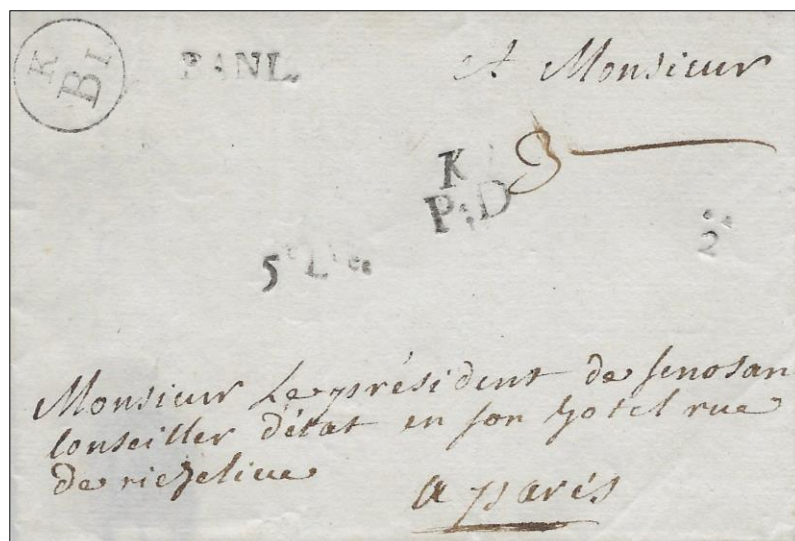 K
B1
PANL.
A Monsieur
K
P.D
3
5e L
2
Monsieur Le président de senosan
Conseiller détat en son hotel rue
de richelieue
a parés